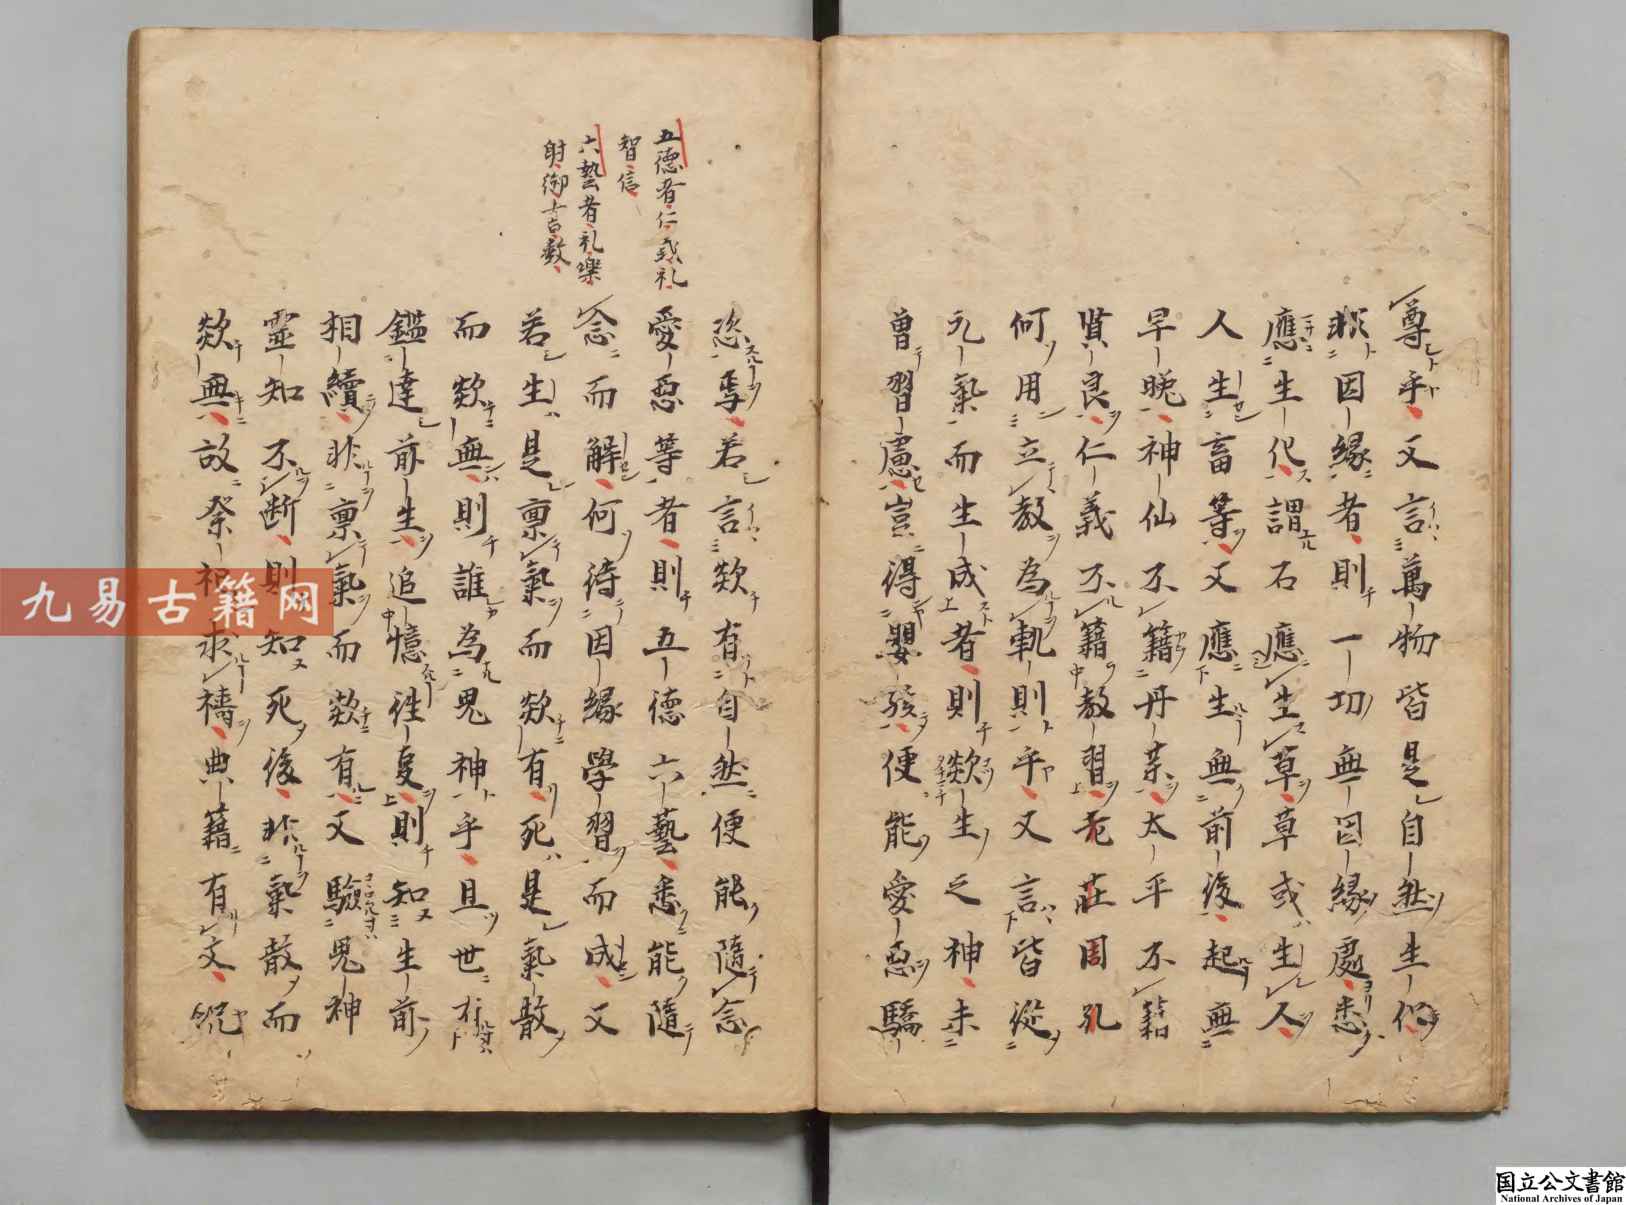 尊乎又言萬物皆是自然生化
非因緣者則一切無因緣處悉
應生化謂石應生草草或生人
人生畜等又應生無前後起無
早晚神仙不籍丹藥太平不籍
賢良仁義不籍教習老莊周孔
何用立教為軌則乎又言皆從
元氣而生成者則欻生之神未
曾習慮豈得嬰孩便能愛惡驕
恣焉若言欻有自然便能隨念
愛惡等者則五德六藝悉能隨
念而解何待因緣學習而成又
若生是稟氣而欻有死是氣散
而欻無則誰為鬼神乎且世有
鑑達前生追憶往事則知生前
相續非稟氣而欻有又驗鬼神
靈知不断則知死後非氣散而
欻無故祭祀求禱典籍有文況
五德者仁義礼
智信
六藝者礼樂
射御書数
九易古籍网
国立公文書館
National Archives of Japan